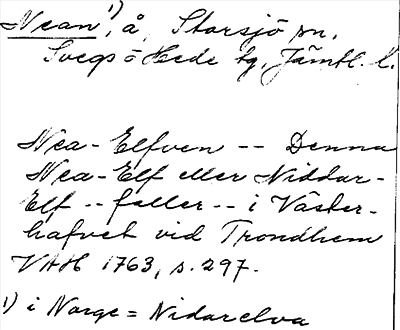 Nean¹⁾, å, Storsjö sn,
Svegs o Hede tg, Jämtl. l.
Nea-Elfven -- Denna
Nea-Elf eller Niddar-
Elf -- faller -- i Väster-
hafvet vid Trondhem
VAH 1763, s. 297.
¹⁾ i Norge = Nidarelva